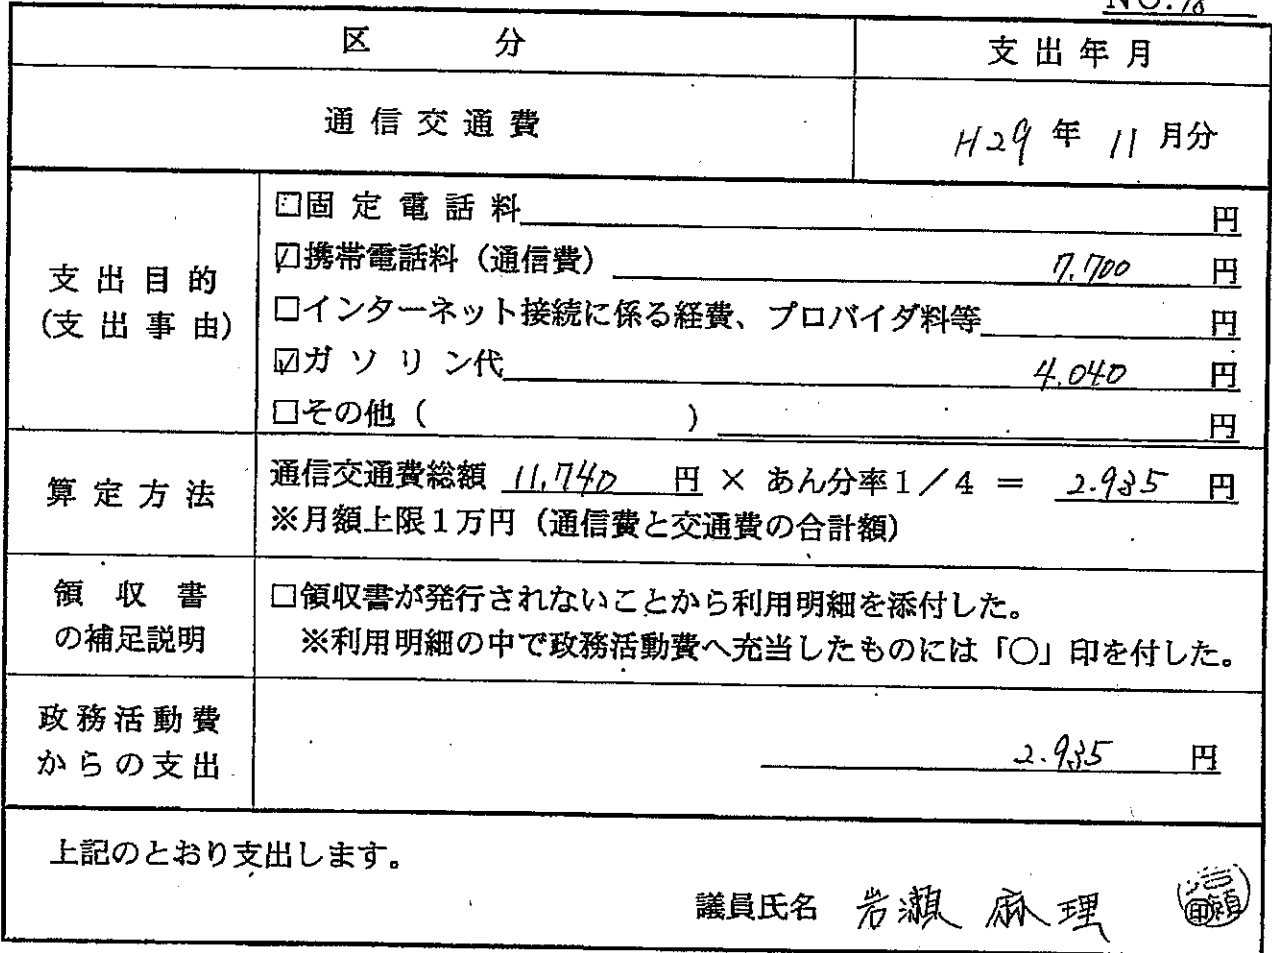 NO.18
区 分
支出年月
通信交通費
H29 年 11 月分
支出目的
(支出事由)
□固定電話料 円
☑携帯電話料（通信費） 7,700 円
□インターネット接続に係る経費、プロバイダ料等 円
☑ガソリン代 4,040 円
□その他（ ） 円
算定方法
通信交通費総額 11,740 円 × あん分率1／4 ＝ 2.935 円
※月額上限１万円（通信費と交通費の合計額）
領収書
の補足説明
□領収書が発行されないことから利用明細を添付した。
※利用明細の中で政務活動費へ充当したものには「○」印を付した。
政務活動費
からの支出
2.935 円
上記のとおり支出します。
議員氏名 岩瀬 麻理 印